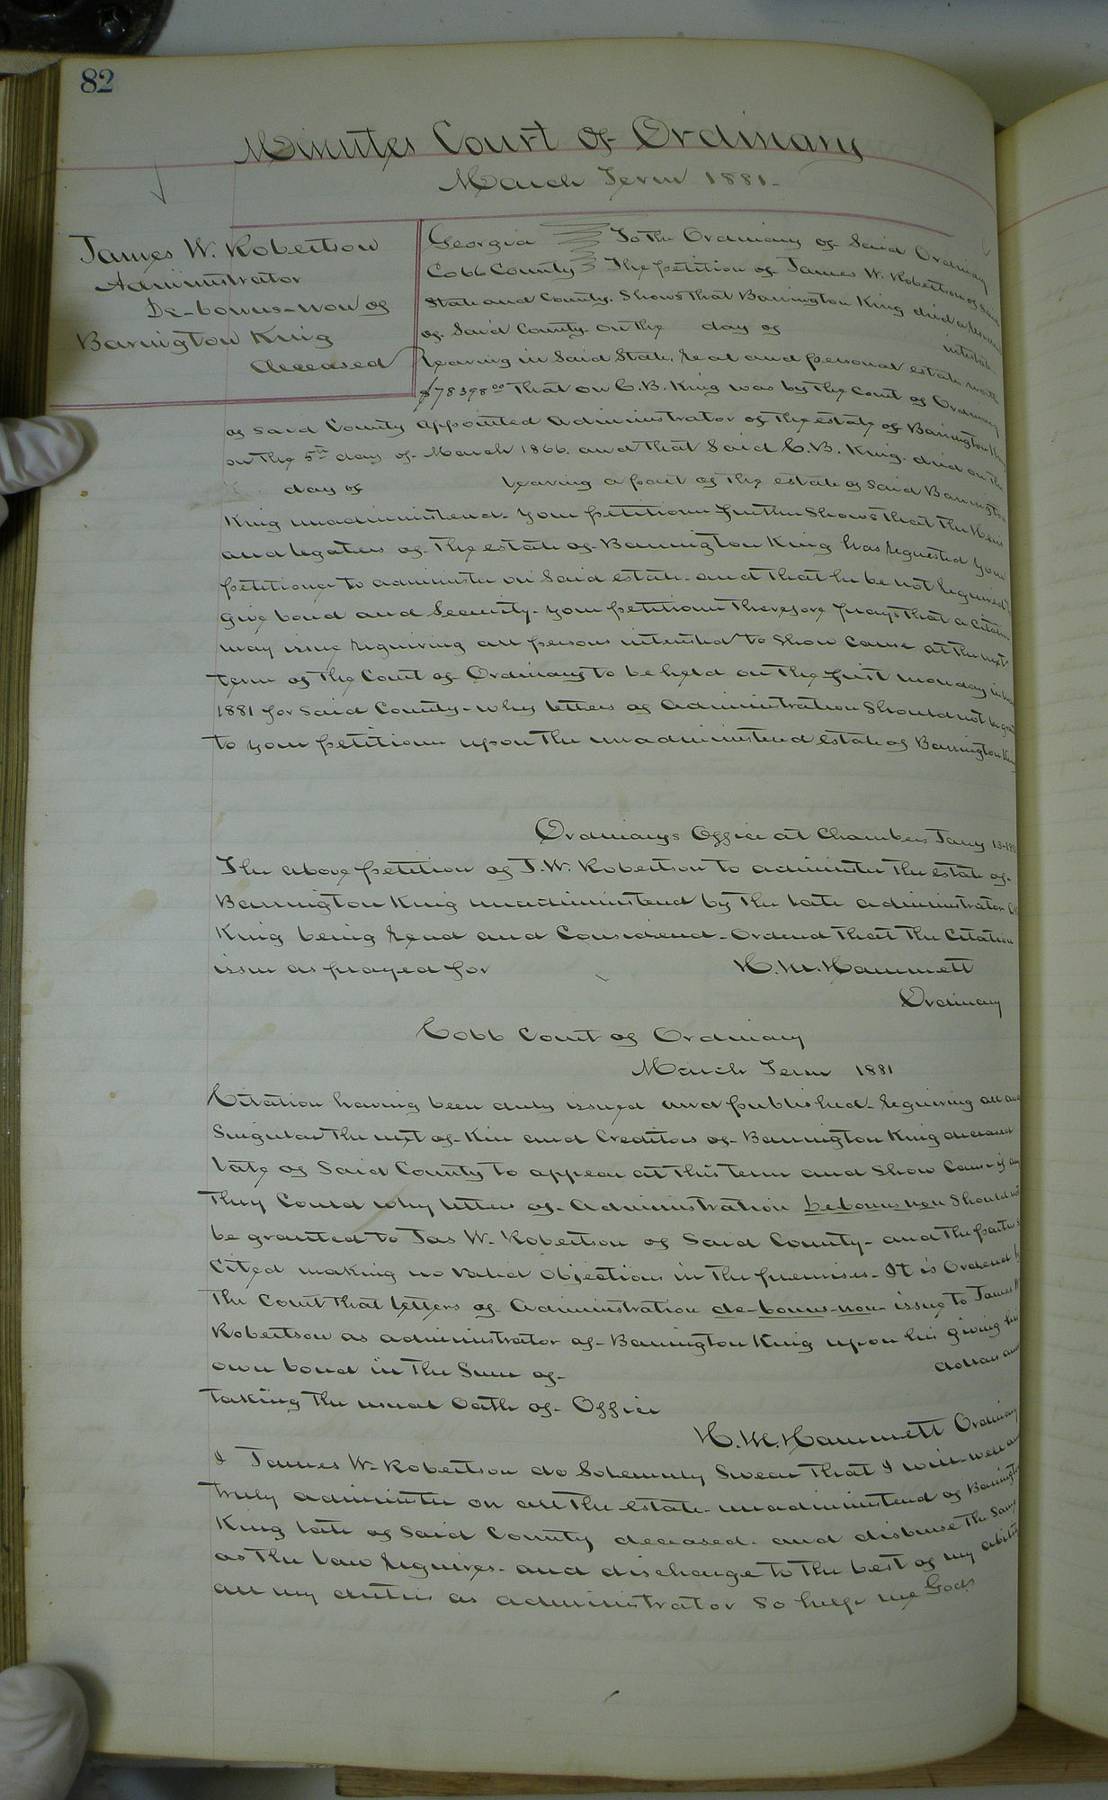 82
Minutes Court of Ordinary
March Term 1881-
James W. Robertson
Administrator
De-bonus-non of
Barrington King
deceased
Georgia To the Ordinary of Said Ordinary
Cobb County The petition of James W. Robertson of Said
State and County. Shows that Barrington King died a resident
of Said County on the day of intestate
leaving in Said State, real and personal estate worth
that on C.B. King was by the Court of Ordinary
of said County appointed administrator of the estate of Barrington King
on the 5th day of March 1866. and that Said C.B. King. died on the
day of leaving a part of the estate of said Barrington
King unadministered- your petitioner further shows that the Heirs
and legatees of the estate of Barrington King has requested your
petitioner to administer on said estate- and that he be not required to
give bond and security- your petitioner therefore prays that a citation
may issue requiring all persons intersted to show cause at the next
term of the Court of Ordinary to be held on the first monday in
1881 for said County- why letters of administration should not be
to your petitioner upon the unadministered estate of Barrington King
Ordinarys Office at Chambers Jany
The above petition of J.W. Robertson to administer the estate of
Barrington King unadministered by the late administrator
King being read and Considered- Ordered that the Citation
issue as prayed for H.M. Hammett
Ordinary
Cobb Court of Ordinary
March Term 1881
Citation having been duly issued and published- requiring all and
Singular the next of Kin and Creditors of Barrington King deceased
late of Said County to appear at this term and show cause if any
They Could why letters of administration be-bonus non should not
be granted to Jas W. Robertson of Said County- and the parties
Cited making no valid objections in the premises- It is Ordered by
the Court that letters of administration de-bonus-non- issue to James W
Robertson as administrator of Barrington King upon his giving his
own bond in the sum of- dollars and
taking the usual oath of Office
H.M. Hammett Ordinary
I James W. Robertson do Solemnly Swear that I will well and
truly administer on all the estate- unadministered of Barrington
King late of said County deceased- and disburse the same
as the law requires- and discharge to the best of my ability
all my duties as administrator So help me God